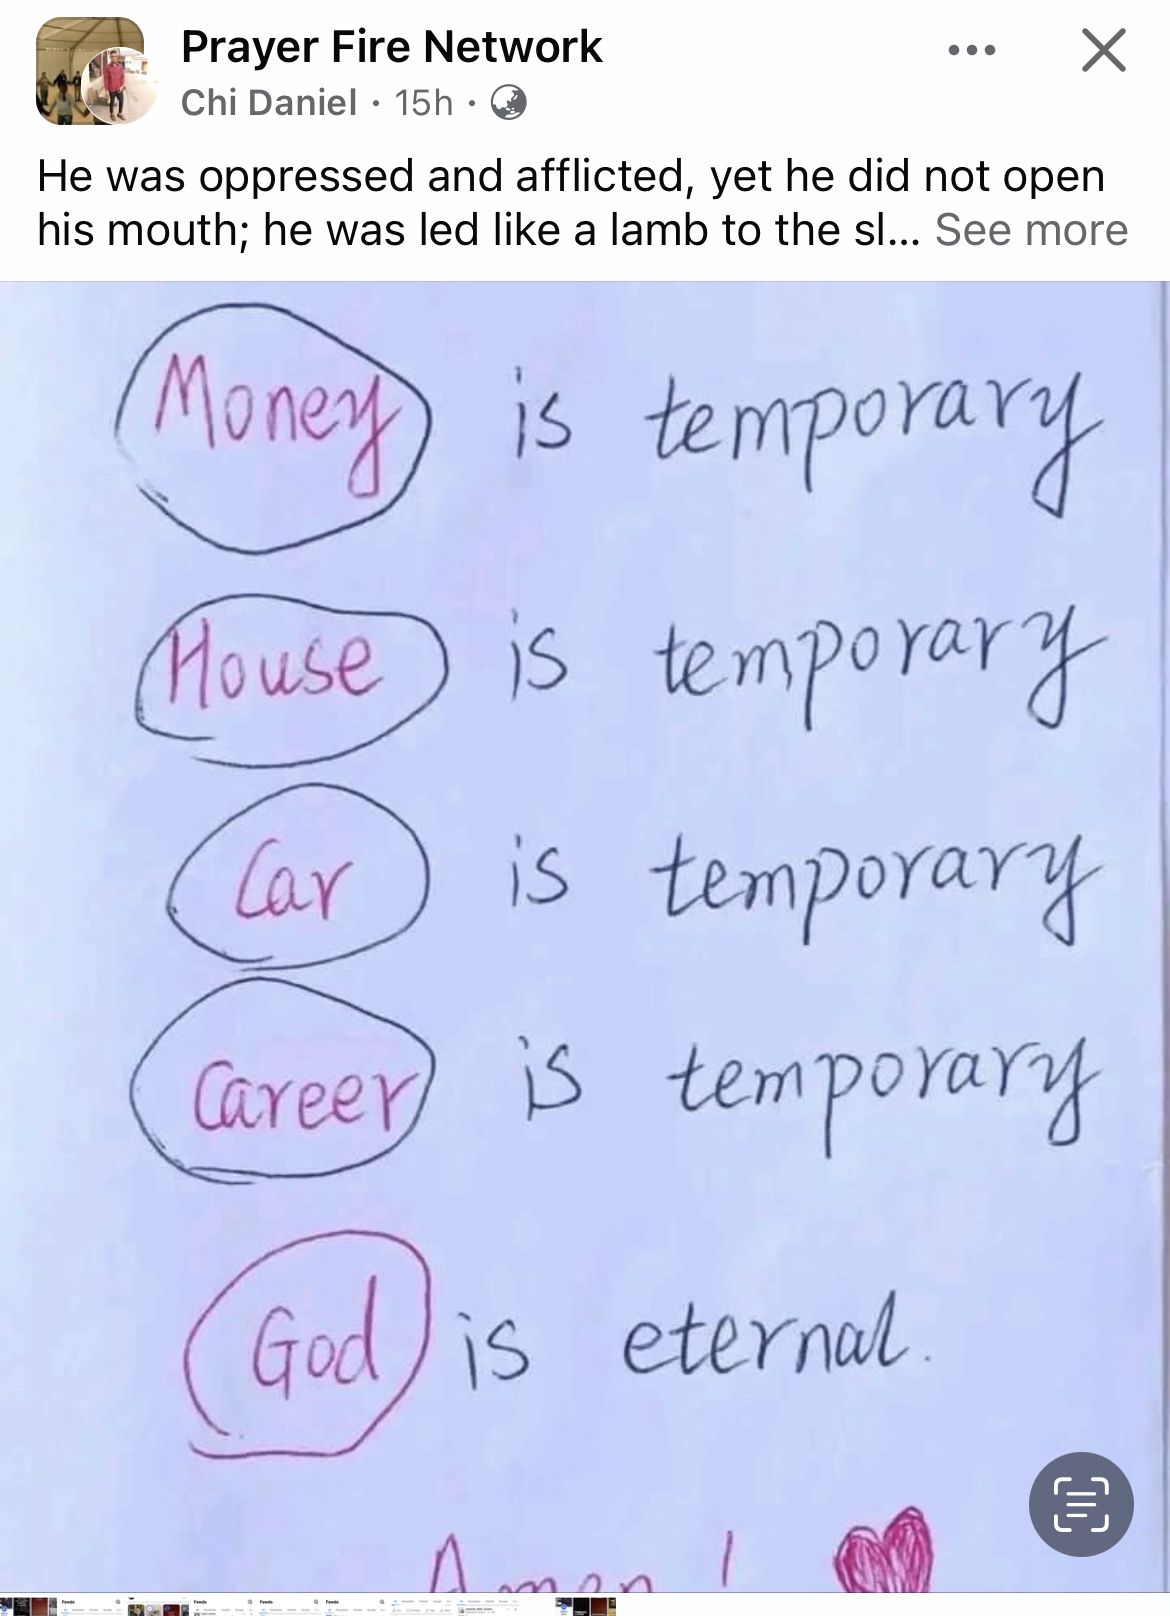 Prayer Fire Network
Chi Daniel · 15h ·
He was oppressed and afflicted, yet he did not open
his mouth; he was led like a lamb to the sl... See more
Money is temporary
House is temporary
Car is temporary
Career is temporary
God is eternal.
Amen!